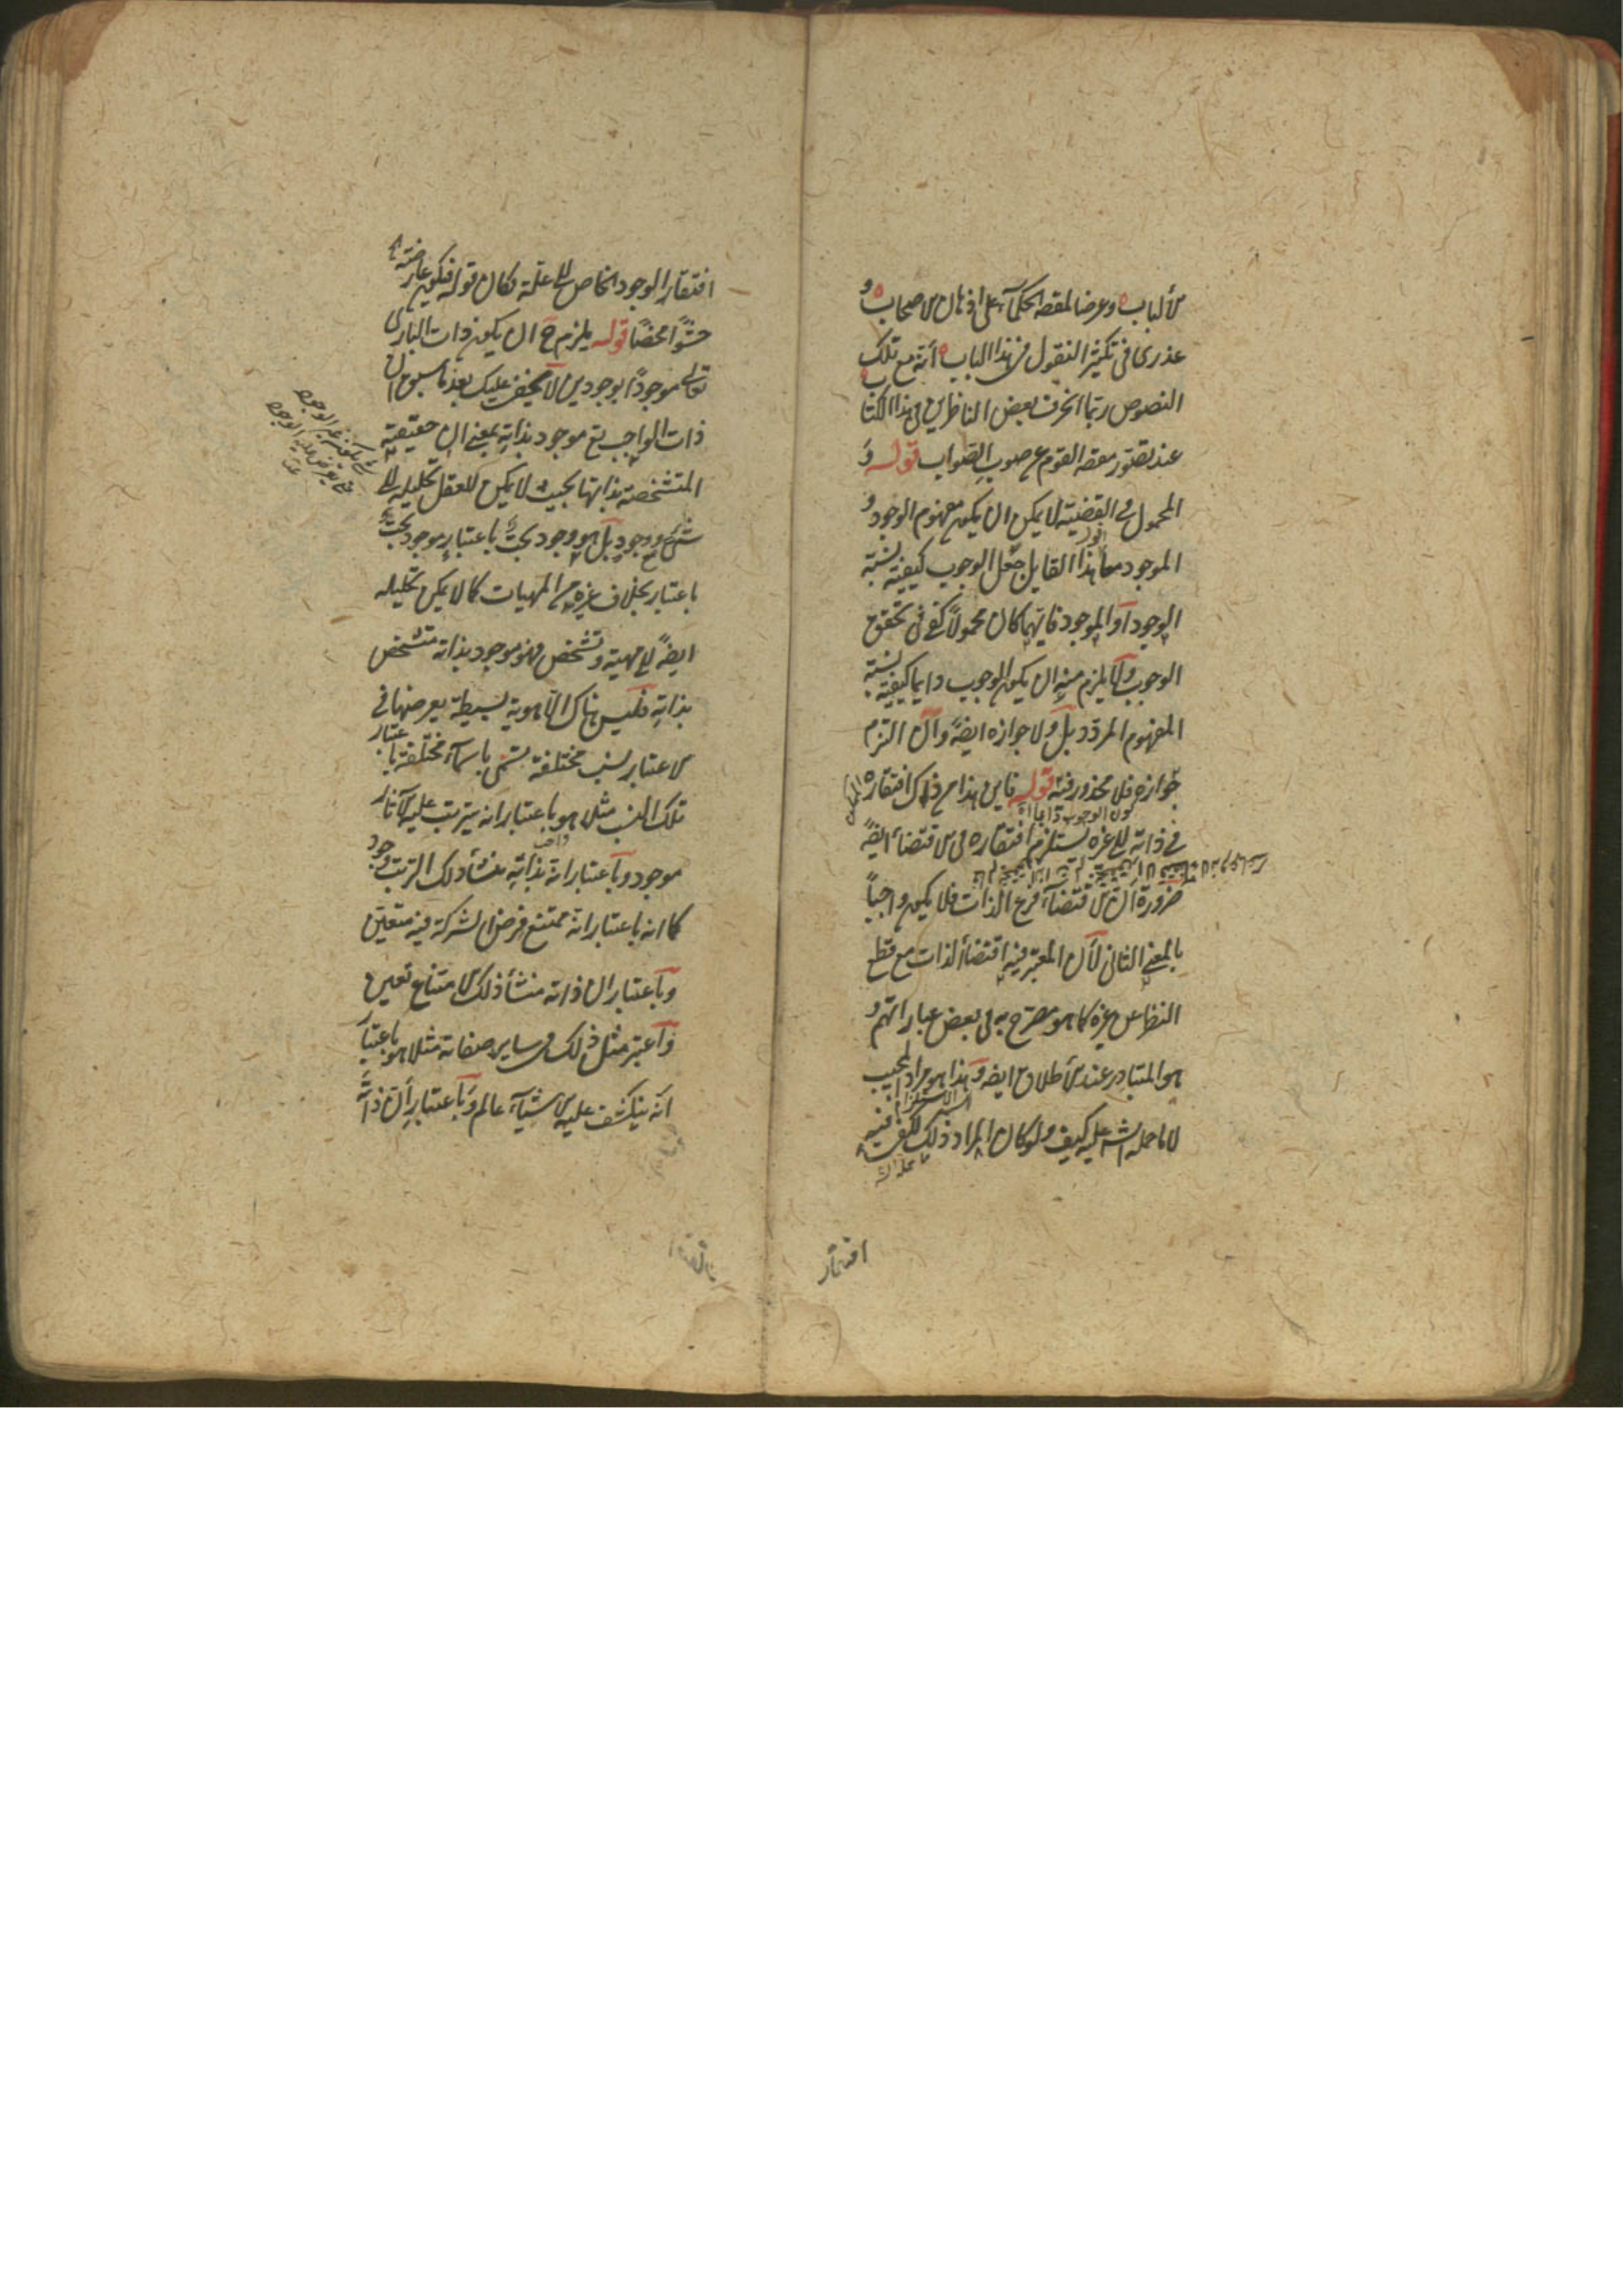 الألباب وعرضا لمقصد الحكماء على اذهان الاصحاب و
عذرى فى تكثير النقول فى هذا الباب أنه مع تلك
النصوص ربما انحرف بعض الناظرين فى هذا الكتاب
عند تصور مقصد القوم عن صوب الصواب قوله و
المحمول فى القضية لا يمكن ان يكون مفهوم الوجود و
الموجود معا هذا القايل جعل الوجوب كيفية نسبة
الوجود أو الموجود فايهما كان محمولاً كفى فى تحقق
الوجوب ولا يلزم منه ان يكون الوجوب دايما كيفية نسبة
المفهوم المردد بل ولا جوازه ايضاً وان التزم
جوازه فلا محذور فيه قوله فاين هذا من ذاك افتقاره
فى ذاته الى غيره يستلزم افتقاره فى الاقتضاء ايضاً
ضرورة ان الاقتضاء فرع الذات فلا يكون واجباً
بالمعنى الثانى لأن المعتبر فيه اقتضاء الذات مع قطع
النظر عن غيره كما هو مصرح به فى بعض عباراتهم و
هو المتبادر عند الأطلاق ايضه وهذا هو مراد المجيب
لا ما حمله الش عليه كيف ولو كان المراد ذلك لكفى فيه
ما حمله الش
افتقار
افتقار الوجود الخاص الى علة لكان قوله فيكون عارضته
حشوًا محضًا قوله يلزم ح ان يكون ذات البارى
تعالى موجودًا بوجودين لا يخفى عليك بعد ما سبق ان
ذات الواجب تع موجود بذاته بمعنى ان حقيقته
المتشخصة بذاتها بحيث لا يمكن للعقل تحليله الى
شئ ووجود بل هو وجود بحت باعتبار موجود بحت
باعتبار بخلاف غيره من المهيات كما لا يمكن تحليله
ايضاً الى مهية وتشخص فهو موجود بذاته متشخص
بذاته فليس هناك الا هوية بسيطة يعرضها فى
الاعتبار نسب مختلفة تسمى باسماء مختلفة باعتبار
تلك النسب مثلا هو باعتبار انه يترتب عليه الآثار
موجود وباعتبار انه بذاته منشأ ذلك الترتب وجود
كما انه باعتبار انه ممتنع فرض الشركة فيه متعين
وباعتبار ان ذاته منشأ ذلك الامتناع تعين
واعتبر مثل ذلك فى ساير صفاته مثلا هو باعتبار
انه ينكشف عليه الاشياء عالم وباعتبار أن ذاته